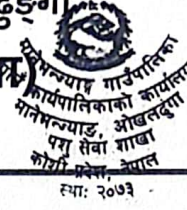 मानेभन्ज्याङ गाउँपालिका
कार्यपालिकाको कार्यालय
मानेभन्ज्याङ, ओखलढुंगा
पशु सेवा शाखा
कोशी प्रदेश, नेपाल
स्था: २०७३